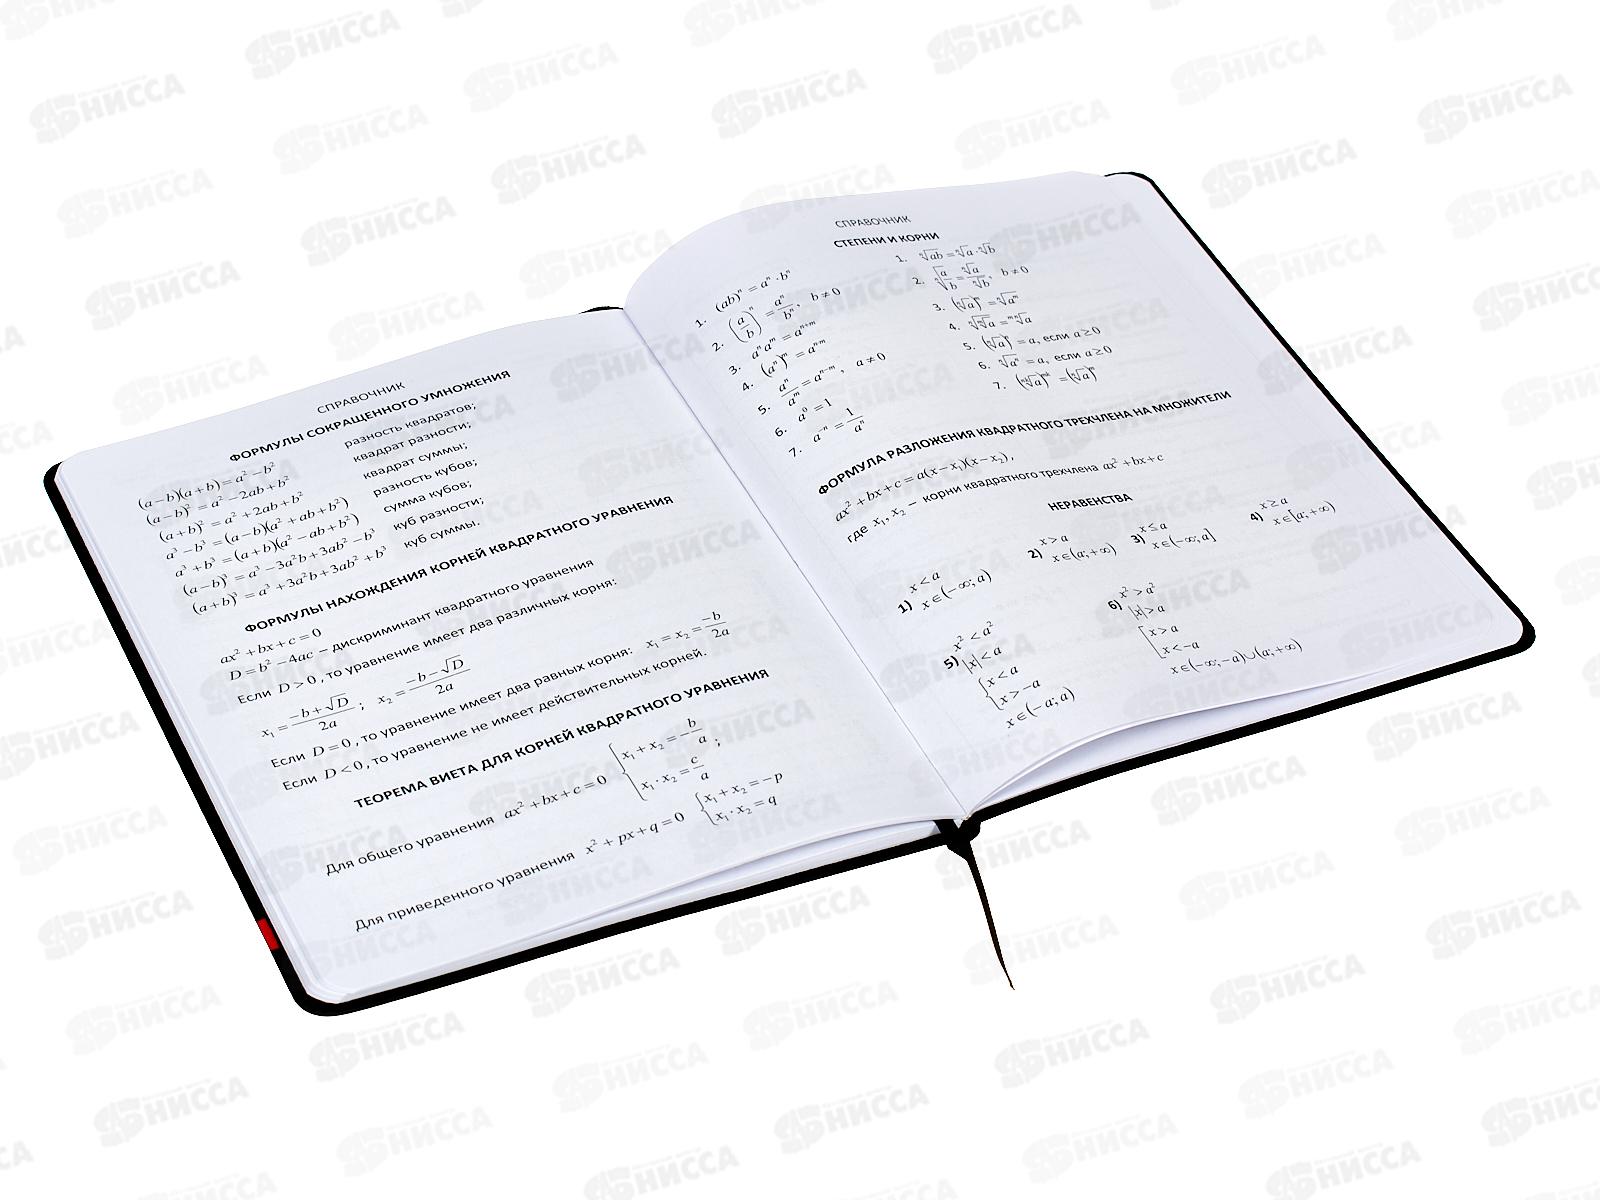 СПРАВОЧНИК
ФОРМУЛЫ СОКРАЩЕННОГО УМНОЖЕНИЯ
(a−b)(a+b)=a²−b² разность квадратов;
(a−b)²=a²−2ab+b² квадрат разности;
(a+b)²=a²+2ab+b² квадрат суммы;
a³−b³=(a−b)(a²+ab+b²) разность кубов;
a³+b³=(a+b)(a²−ab+b²) сумма кубов;
(a−b)³=a³−3a²b+3ab²−b³ куб разности;
(a+b)³=a³+3a²b+3ab²+b³ куб суммы.
ФОРМУЛЫ НАХОЖДЕНИЯ КОРНЕЙ КВАДРАТНОГО УРАВНЕНИЯ
ax²+bx+c=0
D=b²−4ac − дискриминант квадратного уравнения
Если D>0, то уравнение имеет два различных корня:
x₁=(−b+√D)/2a; x₂=(−b−√D)/2a
Если D=0, то уравнение имеет два равных корня: x₁=x₂=−b/2a
Если D<0, то уравнение не имеет действительных корней.
ТЕОРЕМА ВИЕТА ДЛЯ КОРНЕЙ КВАДРАТНОГО УРАВНЕНИЯ
Для общего уравнения ax²+bx+c=0 { x₁+x₂=−b/a ;
x₁·x₂=c/a
Для приведенного уравнения x²+px+q=0 { x₁+x₂=−p
x₁·x₂=q
СПРАВОЧНИК
СТЕПЕНИ И КОРНИ
1. (ab)ⁿ=aⁿ·bⁿ
2. (a/b)ⁿ=aⁿ/bⁿ, b≠0
3. aⁿaᵐ=aⁿ⁺ᵐ
4. (aⁿ)ᵐ=aⁿᵐ
5. aⁿ/aᵐ=aⁿ⁻ᵐ, a≠0
6. a⁰=1
7. a⁻ⁿ=1/aⁿ
1. ⁿ√ab=ⁿ√a·ⁿ√b
2. ⁿ√(a/b)=ⁿ√a/ⁿ√b, b≠0
3. (ⁿ√a)ᵐ=ⁿ√aᵐ
4. ᵐ√ⁿ√a=ᵐⁿ√a
5. (ⁿ√a)ⁿ=a, если a≥0
6. ⁿ√aⁿ=a, если a≥0
7.
ФОРМУЛА РАЗЛОЖЕНИЯ КВАДРАТНОГО ТРЕХЧЛЕНА НА МНОЖИТЕЛИ
ax²+bx+c=a(x−x₁)(x−x₂),
где x₁,x₂ − корни квадратного трехчлена ax²+bx+c
НЕРАВЕНСТВА
1) x<a
x∈(−∞;a)
2) x>a
x∈(a;+∞)
3) x≤a
x∈(−∞;a]
4) x≥a
x∈[a;+∞)
5) x²<a²
|x|<a
{ x<a
x>−a
x∈(−a;a)
6) x²>a²
|x|>a
[ x>a
x<−a
x∈(−∞;−a)∪(a;+∞)
НИССА